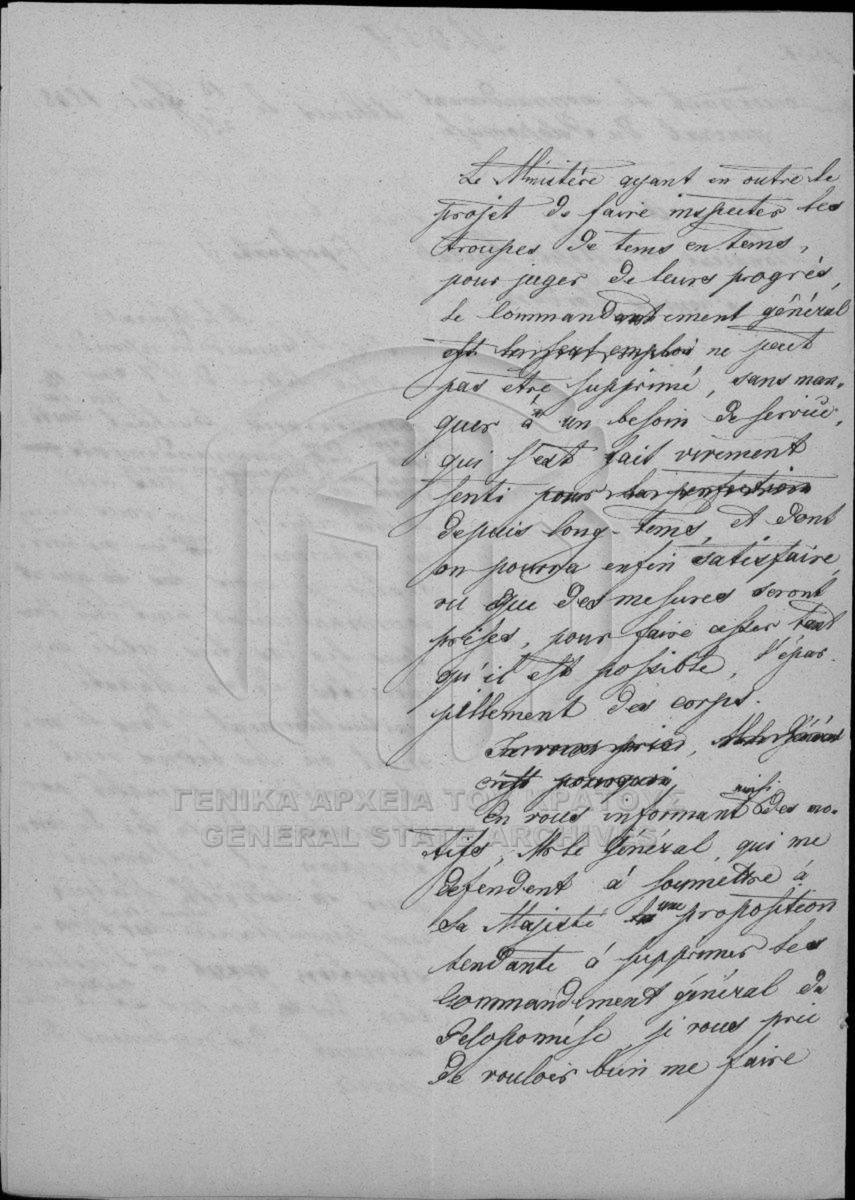 Le Ministère ayant en outre le
projet de faire inspecter les
troupes de tems en tems,
pour juger de leurs progrès,
le Commandantement général
est ne peut
pas être supprimé, sans man-
quer à un besoin de service,
qui s'est fait vivement
senti pour
depuis long-tems, et dont
on pourra enfin satisfaire,
vu que des mesures seront
prises, pour faire cesser tant
qu'il est possible, l'épar-
pillement des corps.
Je vous prie,
c'est pourquoi
En vous informant ainsi des mo-
tifs, Mr le Général, qui me
défendent à soumettre à
Sa Majesté une proposition
tendante à supprimer les
Commandement général du
Péloponnèse, je vous prie
de vouloir bien me faire
ΓΕΝΙΚΑ ΑΡΧΕΙΑ ΤΟΥ ΚΡΑΤΟΥΣ
GENERAL STATE ARCHIVES